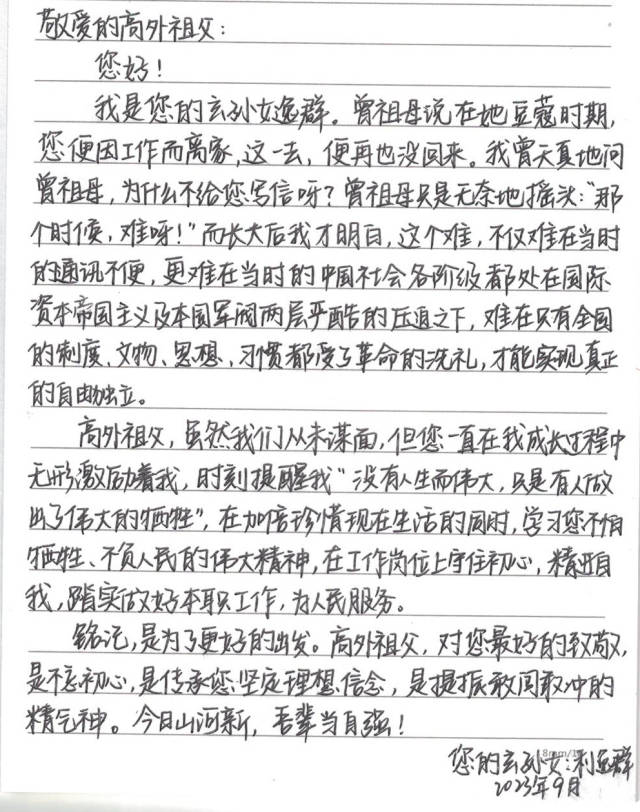 敬爱的高外祖父：
您好！
我是您的玄孙女逸群。曾祖母说在她豆蔻时期，
您便因工作而离家，这一去，便再也没回来。我曾天真地问
曾祖母，为什么不给您写信呀？曾祖母只是无奈地摇头：“那
个时候，难呀！”而长大后我才明白，这个难，不仅难在当时
的通讯不便，更难在当时的中国社会各阶级都处在国际
资本帝国主义及本国军阀两层严酷的压迫之下，难在只有全国
的制度、文物、思想、习惯都受了革命的洗礼，才能实现真正
的自由独立。
高外祖父，虽然我们从未谋面，但您一直在我成长过程中
无形激励着我，时刻提醒我“没有人生而伟大，只是有人做
出了伟大的牺牲”，在加倍珍惜现在生活的同时，学习您不怕
牺牲、不负人民的伟大精神，在工作岗位上守住初心，精进自
我，踏实做好本职工作，为人民服务。
铭记，是为了更好的出发。高外祖父，对您最好的致敬，
是不忘初心，是传承您坚定理想信念，是提振敢闯敢冲的
精气神。今日山河新，吾辈当自强！
您的玄孙女：利逸群
2023年9月